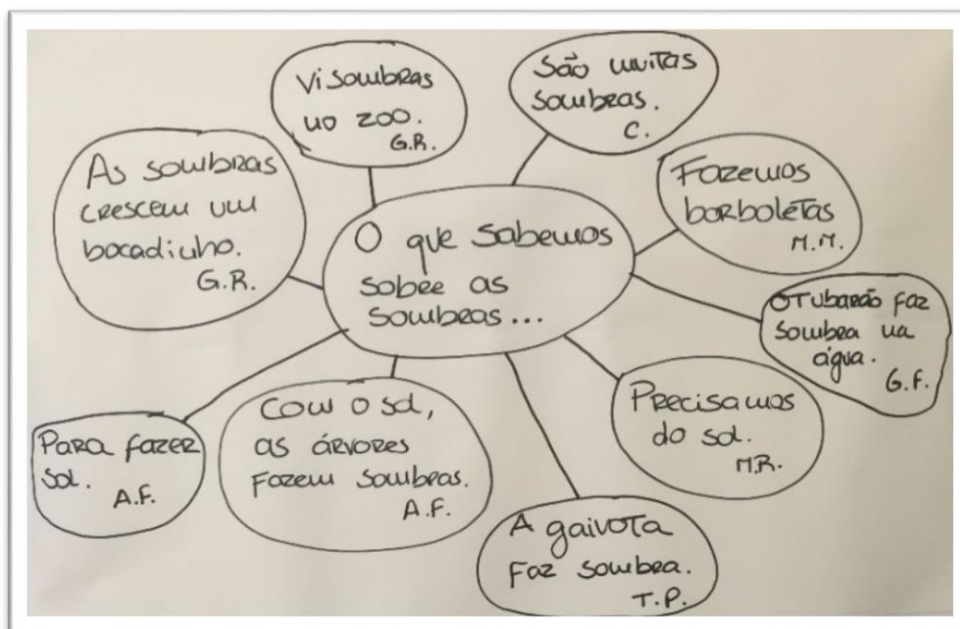 O que sabemos
sobre as
sombras...
Vi sombras
no zoo.
G.R.
São muitas
sombras.
C.
Fazemos
borboletas
M.M.
O Tubarão faz
sombra na
água.
G.F.
Precisamos
do sol.
M.R.
A gaivota
faz sombra.
T.P.
Com o sol,
as árvores
fazem sombras.
A.F.
Para fazer
sol.
A.F.
As sombras
crescem um
bocadinho.
G.R.